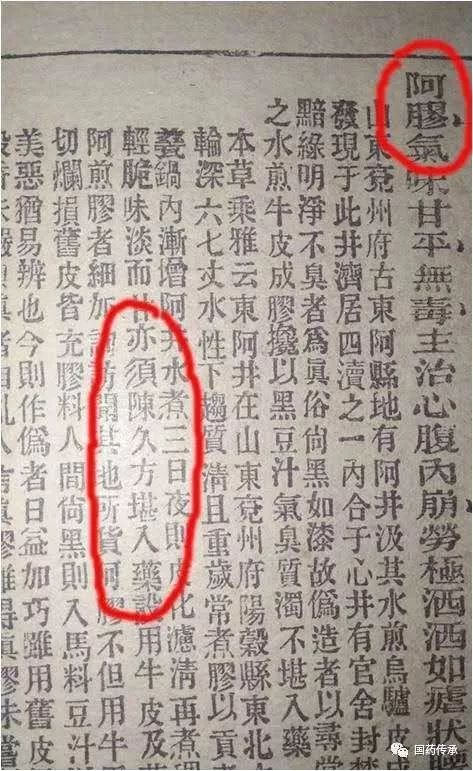 阿膠氣味甘平無毒主治心腹內崩勞極洒洒如瘧狀腰
山東兗州府古東阿縣地有阿井汲其水煎烏驢皮
發現于此井濟居四瀆之一內合于心井有官舍封禁
黯綠明淨不臭者為眞俗尙黑如漆故僞造者以尋常
之水煎牛皮成膠攙以黑豆汁氣臭質濁不堪入藥
本草乘雅云東阿井在山東兗州府陽穀縣東北
輪深六七丈水性下趨質淸且重歲常煮膠以貢
鍋內漸增阿井水煮三日夜則皮化濾淸再煮
輕脆味淡而甘亦須陳久方堪入藥設用牛皮及
阿煎膠者細加訪聞其地所貨阿膠不但用牛
切爛損舊皮皆充膠料人間尙黑則入馬料豆汁
美惡猶易辨也今則作僞者日益加巧雖用舊皮
眞膠難得眞膠未嘗
国药传承